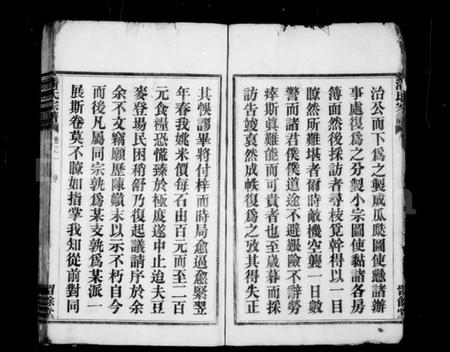 治公而下爲之製成瓜瓞圖使懸諸辦
事處復爲之分製小宗圖使黏諸各房
簿面然後採訪者尋核覺幹得以一目
瞭然所難堪者爾時敵機空襲一日數
警而諸君僕僕道途不避艱險不辭勞
瘁斯眞難能而可貴者也至歲暮而採
訪告竣裒然成帙復爲之攷其得失正
其悞謬畢將付梓而時局愈逼愈緊翌
年春我姚米價每石由百元而至二百
元食糧恐慌臻於極度遂中止迨夫豆
麥登場民困稍舒乃復起議請序於余
余不文竊願歷陳巔末以示不朽自今
而後凡屬同宗孰爲某支孰爲某派一
展斯卷莫不瞭如指掌我知從前對同
氏宗譜
卷之一
序
餘慶堂